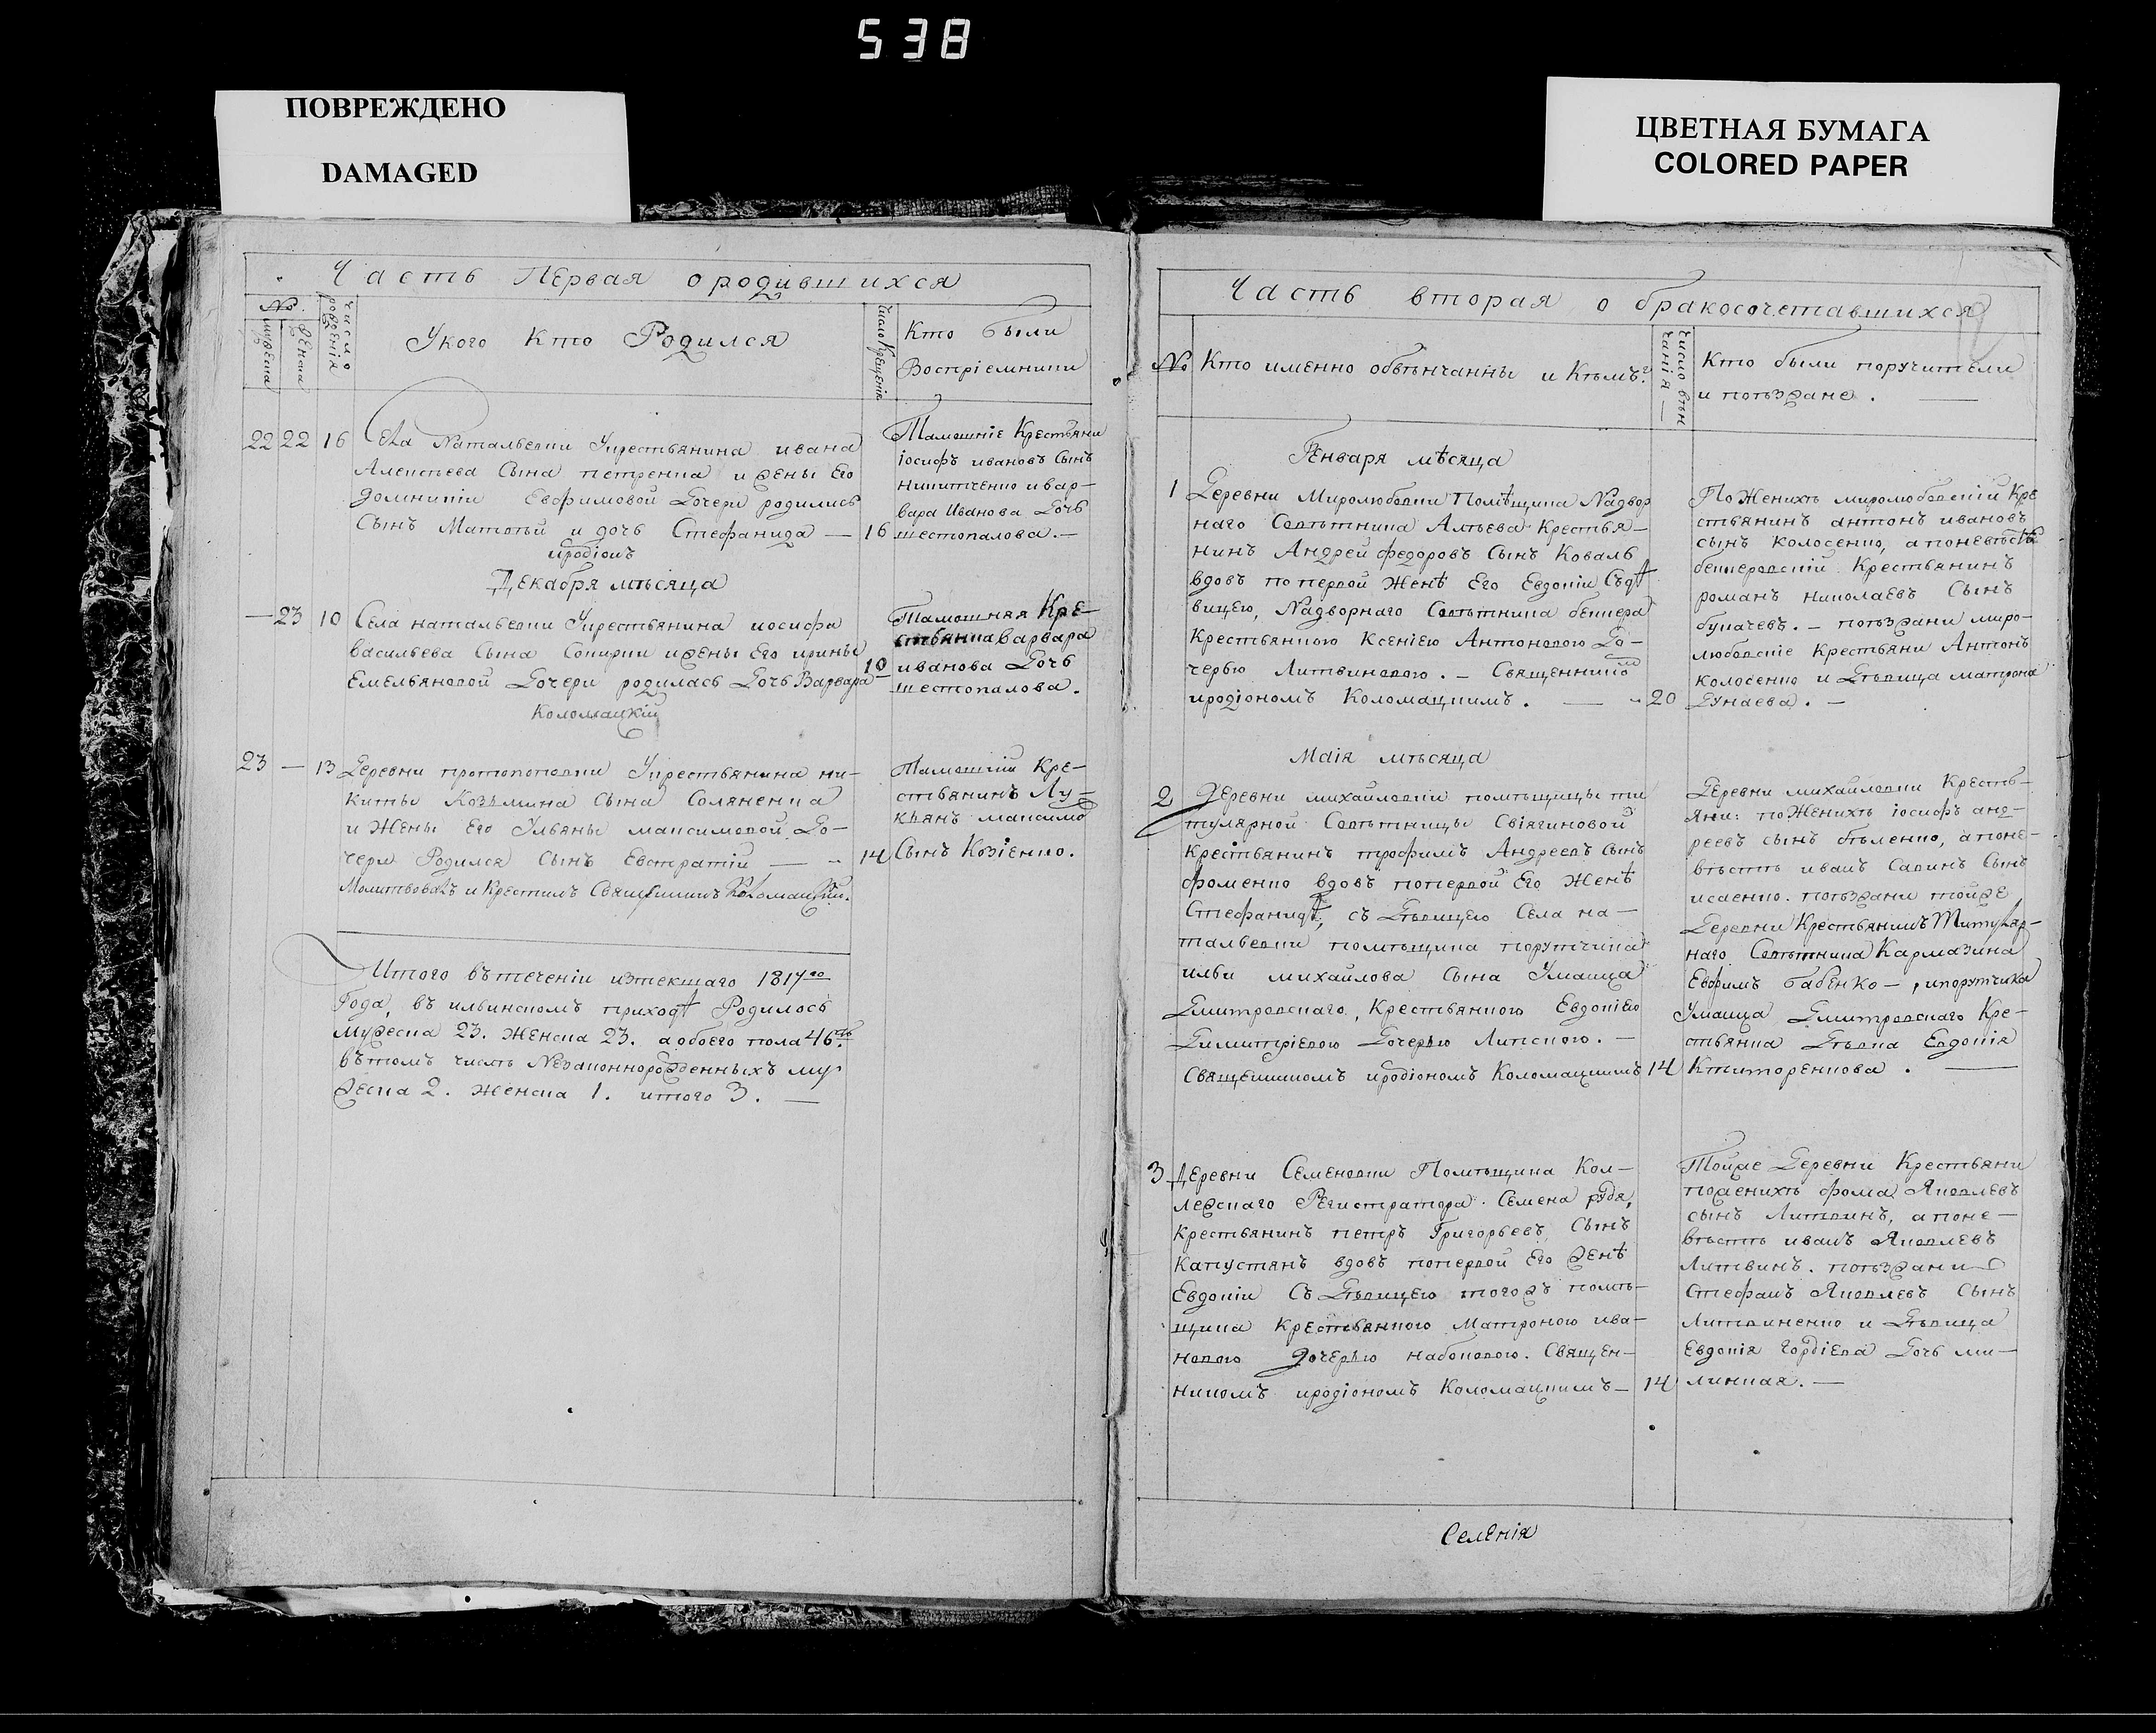 538
ПОВРЕЖДЕНО
DAMAGED
ЦВЕТНАЯ БУМАГА
COLORED PAPER
Часть Первая о родившихся
№
мужеска
женска
число рождения
Укого кто Родился
число крещения
Кто были
Воспріемники
22 22 16 Села Натальевки Укрестьянина ивана
Алексѣева Сына петренка и жены Его
домникіи Евфимовой Дочери родились
Сынъ Матѳей и дочь Стефанида — 16
иродіонъ
Тамошніе Крестьяни
іосифъ ивановъ Сынъ
никитченко и вар-
вара Иванова Дочь
шестопалова. —
Декабря мѣсяца
— 23 10 Села натальевки Укрестьянина иосифа
васильева Сына Сокирки и жены Его ирины
Емельяновой Дочери родилась Дочь Варвара 10
Коломацкій
Тамошняя Кре-
стьянка варвара
иванова Дочь
шестопалова.
23 — 13 Деревни протопоповки Укрестьянина ни-
киты Козьмина Сына Соляненка
и Жены Его Ульяны максимовой До-
чери Родился Сынъ Евстратій — 14
Молитвовалъ и Крестилъ Священникъ Коломацкій.
Тамошній Кре-
стьянинъ Лу-
кьянъ максимо
Сынъ Козіенко.
Итого въ теченіи изтекшаго 1817го
Года, въ ильинскомъ приходѣ Родилось
мужеска 23. Женска 23. а обоего пола 46.
въ томъ числѣ Незаконнорожденныхъ му-
жеска 2. женска 1. итого 3. —
Часть вторая о бракосочетавшихся
№ Кто именно обвѣнчанны и Кѣмъ?
число вѣн
чанія —
Кто были поручители
и поѣзжане. —
Генваря мѣсяца
1 Деревни Миролюбовки Помѣщика Надвор
наго Совѣтника Алѣева Крестья-
нинъ Андрей федоровъ Сынъ Коваль
вдовъ по первой Женѣ Его Евдокіи Съ дѣ
вицею, Надворнаго Совѣтника беккера
Крестьянкою Ксеніею Антоновою До-
черью Литвиновою. — Священнико
иродіономъ Коломацкимъ. — 20
По Женихѣ миролюбовскій Кре
стьянинъ антонъ ивановъ
сынъ Колосенко, а по невѣстѣ
беккеровскій Крестьянинъ
романъ николаевъ Сынъ
букачевъ. — поѣзжани миро-
любовскіе Крестьяни Антонъ
колосенко и Дѣвица матрона
Дунаева. —
Маія мѣсяца
2 Деревни михайловки помѣщицы ти
тулярной Совѣтницы Свіягиновой
Крестьянинъ трофимъ Андреевъ Сынъ
фоменко вдовъ попервой Его Женѣ
Стефанидѣ, съ Дѣвицею Села на-
тальевки помѣщика порутчика
ильи михайлова Сына Уманца
Дмитровскаго, Крестьянкою Евдокіею
Димитріевою Дочерью Липскою. —
Священникомъ иродіономъ Коломацкимъ 14
Деревни михайловки Кресть-
яни: по Женихѣ іосифъ анд-
реевъ сынъ бѣленко, а поне-
вѣстѣ иванъ Савинъ Сынъ
исаенко. поѣзжани тойже
Деревни Крестьянинъ Титуляр-
наго Совѣтника Кармазина
Евфимъ бабенко —, ипорутчика
Уманца Дмитровскаго Кре-
стьянка Дѣвка Евдокія
Ктиторенкова. —
3 Деревни Семеновки Помѣщика Кол-
лежскаго Регистратора Семена
Крестьянинъ петръ Григорьевъ Сынъ
Капустянъ вдовъ попервой Его женѣ
Евдокіи Съ Дѣвицею тогожъ помѣ-
щика Крестьянкою Матроною ива-
новою дочерью набоковою. Священ-
никомъ иродіономъ Коломацкимъ — 14
Тойже Деревни Крестьяни
поженихѣ фома Яковлевъ
сынъ Литвинъ, а поне-
вѣстѣ иванъ Яковлевъ
Литвинъ. поѣзжани
Стефанъ Яковлевъ Сынъ
Литвиненко и Дѣвица
Евдокія гордіева Дочь ми-
линкая. —
Селенія